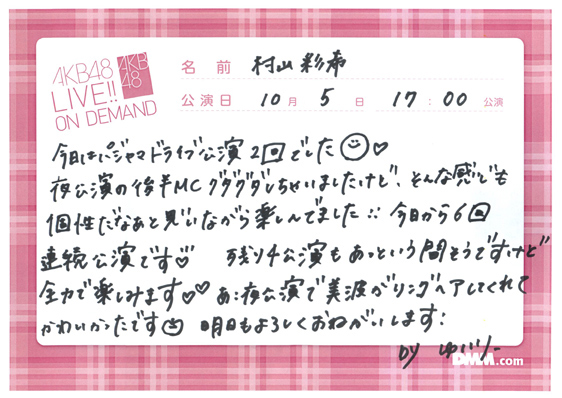 AKB48
LIVE!!
ON DEMAND
AKB
48
名前 村山彩希
公演日 10月5日 17:00公演
今日はパジャマドライブ公演2回でした♡
夜公演の後半MCグダグダしちゃいましたけど、そんな感じでも
個性だなあと思いながら楽しんでました 今日から6回
連続公演です♡ 残り4公演もあっという間そうですけど
全力で楽しみます♡♡ あ!夜公演で美波がリングヘアしてくれて
かわいかったです 明日もよろしくおねがいします!
by ゆいりー
DMM.com